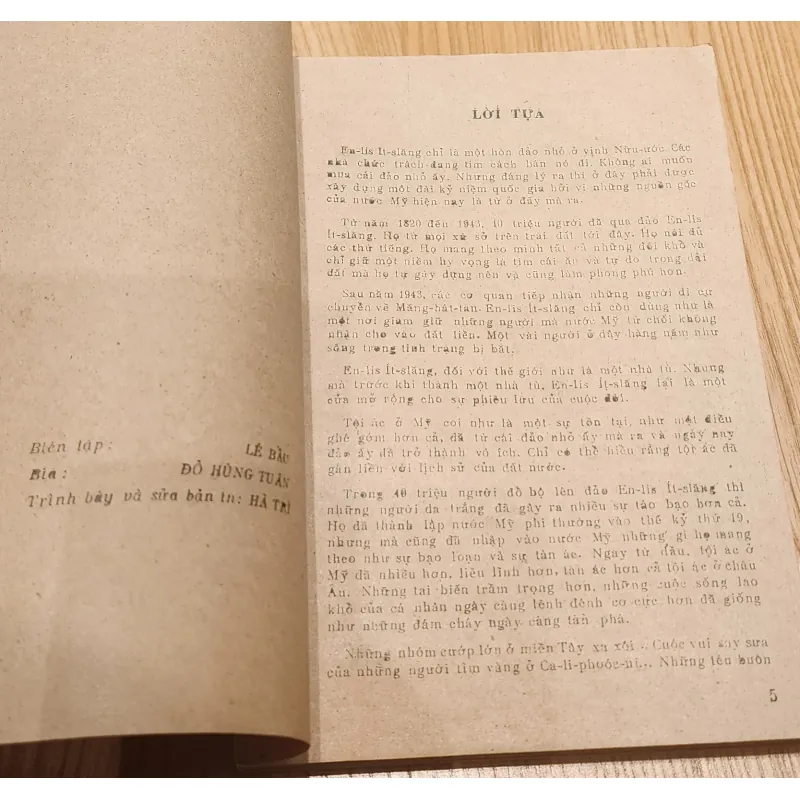 Biên tập: LÊ BẦU
Bìa: ĐỖ HÙNG TUẤN
Trình bày và sửa bản in: HÀ TRÌ
LỜI TỰA
En-lis Ít-slăng chỉ là một hòn đảo nhỏ ở vịnh Nữu-ước. Các
nhà chức trách đang tìm cách bán nó đi. Không ai muốn
mua cái đảo nhỏ ấy. Nhưng đáng lý ra thì ở đây phải được
xây dựng một đài kỷ niệm quốc gia bởi vì những nguồn gốc
của nước Mỹ hiện nay là từ ở đấy mà ra.
Từ năm 1820 đến 1943, 40 triệu người đã qua đảo En-lis
Ít-slăng. Họ từ mọi xứ sở trên trái đất tới đây. Họ nói đủ
các thứ tiếng. Họ mang theo mình tất cả những đói khổ và
chỉ giữ một niềm hy vọng là tìm cái ăn và tự do trong dải
đất mà họ tự gây dựng nên và cũng làm phong phú hơn.
Sau năm 1943, các cơ quan tiếp nhận những người di cư
chuyển về Măng-hát-tan. En-lis Ít-slăng chỉ còn dùng như là
một nơi giam giữ những người mà nước Mỹ từ chối không
nhận cho vào đất liền. Một vài người ở đây hàng năm như
sống trong tình trạng bị bắt.
En-lis Ít-slăng, đối với thế giới như là một nhà tù. Nhưng
mà trước khi thành một nhà tù, En-lis Ít-slăng lại là một
cửa mở rộng cho sự phiêu lưu của cuộc đời.
Tội ác ở Mỹ coi như là một sự tồn tại, như một điều
ghê gớm hơn cả, đã từ cái đảo nhỏ ấy mà ra và ngày nay
đảo ấy đã trở thành vô ích. Chỉ có thể hiểu rằng tội ác đã
gắn liền với lịch sử của đất nước.
Trong 40 triệu người đổ bộ lên đảo En-lis Ít-slăng thì
những người da trắng đã gây ra nhiều sự táo bạo hơn cả.
Họ đã thành lập nước Mỹ phi thường vào thế kỷ thứ 19,
nhưng mà cũng đã nhập vào nước Mỹ những gì họ mang
theo như sự bạo loạn và sự tàn ác. Ngay từ đầu, tội ác ở
Mỹ đã nhiều hơn, liều lĩnh hơn, tàn ác hơn cả tội ác ở châu
Âu. Những tai biến trầm trọng hơn, những cuộc sống lao
khổ của cá nhân ngày càng lênh đênh cơ cực hơn đã giống
như những đám cháy ngày càng tàn phá.
Những nhóm cướp lớn ở miền Tây xa xôi... Cuộc vui say sưa
của những người tìm vàng ở Ca-li-phoóc-ni... Những tên buôn
5